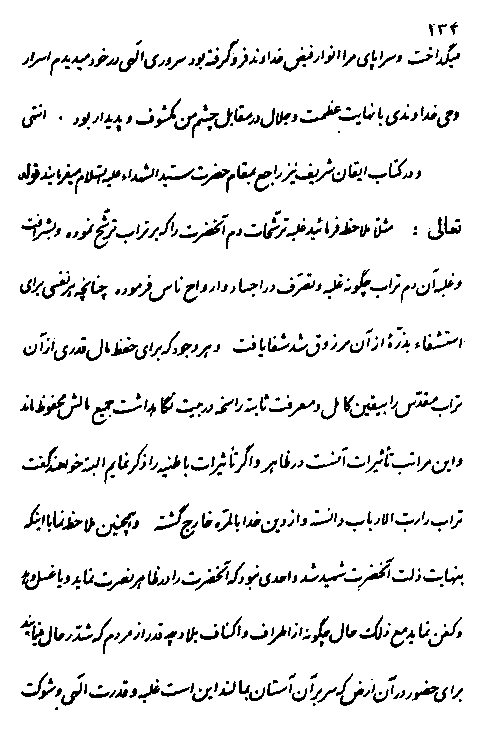 ۱۳۴
میگداخت و سراپای مرا انوار فیض خداوند فرو گرفته بود سروری الهی در خود میدیدم اسرار
وحی خداوندی با نهایت عظمت و جلال در مقابل چشم من مکشوف و پدیدار بود . انتهی
و در کتاب ایقان شریف نیز راجع بمقام حضرت سید الشهداء علیه السلام میفرمایند قوله
تعالی : مثلا ملاحظه فرمائید غلبه ترشحات دم آنحضرت را که بر تراب ترشح نموده و بشرافت
و غلبه آن دم تراب چگونه غلبه و تصرف در اجساد و ارواح ناس فرموده چنانچه هر نفسی برای
استشفاء بذرّهٔ از آن مرزوق شد شفا یافت و هر وجود که برای حفظ مال قدری از آن
تراب مقدّس را بیقین کامل و معرفت ثابته راسخه در بیت نگاهداشت جمیع مالش محفوظ ماند
و این مراتب تأثیرات آنست در ظاهر و اگر تأثیرات باطنیه را ذکر نمایم البته خواهند گفت
تراب را رب الارباب دانسته و از دین خدا بالمرّه خارج گشته و همچنین ملاحظه نما با اینکه
بنهایت ذلت آنحضرت شهید شد و احدی نبود که آنحضرت را در ظاهر نصرت نماید و یا غسل دهد
و کفن نماید مع ذلک حال چگونه از اطراف و اکناف بلاد چه قدر از مردم که شدّ رحال مینمایند
برای حضور در آن ارض که سر بر آن آستان بمالند این است غلبه و قدرت الهی و شوکت